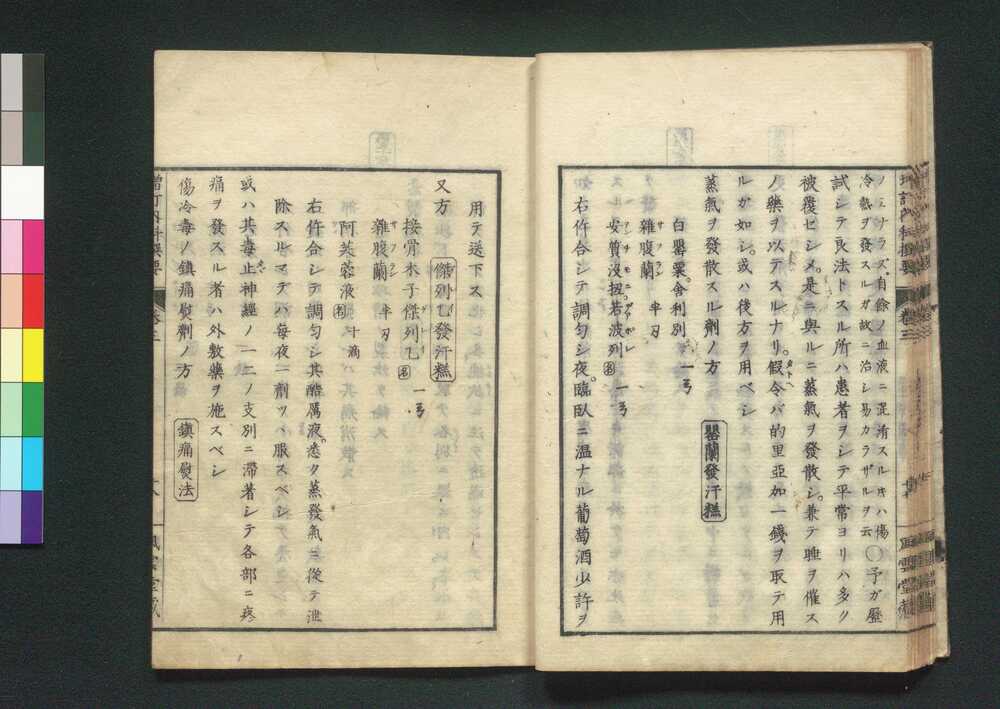 ノミナラズ自餘ノ血液ニ混淆スルヰハ傷
冷熱ヲ發スルガ故ニ治シ易カラザルヲ云〇予ガ歴
試シテ良法トスル所ハ患者ヲシテ平常ヨリハ多ク
被覆セシメ是ニ與ルニ蒸氣ヲ發散シ兼テ睡ヲ催ス
ノ藥ヲ以テスルナリ假令バ的里亞加一錢ヲ取テ用
ルガ如シ或ハ後方ヲ用ベシ
蒸氣ヲ發散スルノ方 罌蘭發汗糕
白罌粟舍利別 一弓
雜腹蘭 半刃
安質沒扭若波列 名 一弓
右件合シテ調匀シ夜臨臥ニ温ナル葡萄酒少許ヲ
用テ送下ス
又方 傑列乙發汗糕
接骨木子傑列乙 名 一弓
雜腹蘭 半刃
阿芙蓉液 名 十滴
右件合シテ調匀シ其酷厲液悉ク蒸發氣ニ從テ泄
除スルマデハ毎夜一劑ヅヽ服スベシ
或ハ其毒止神經ノ一二ノ支別ニ滯著シテ各部ニ疼
痛ヲ發スル者ハ外敷藥ヲ施スベシ
傷冷毒ノ鎮痛熨劑ノ方 鎮痛熨法